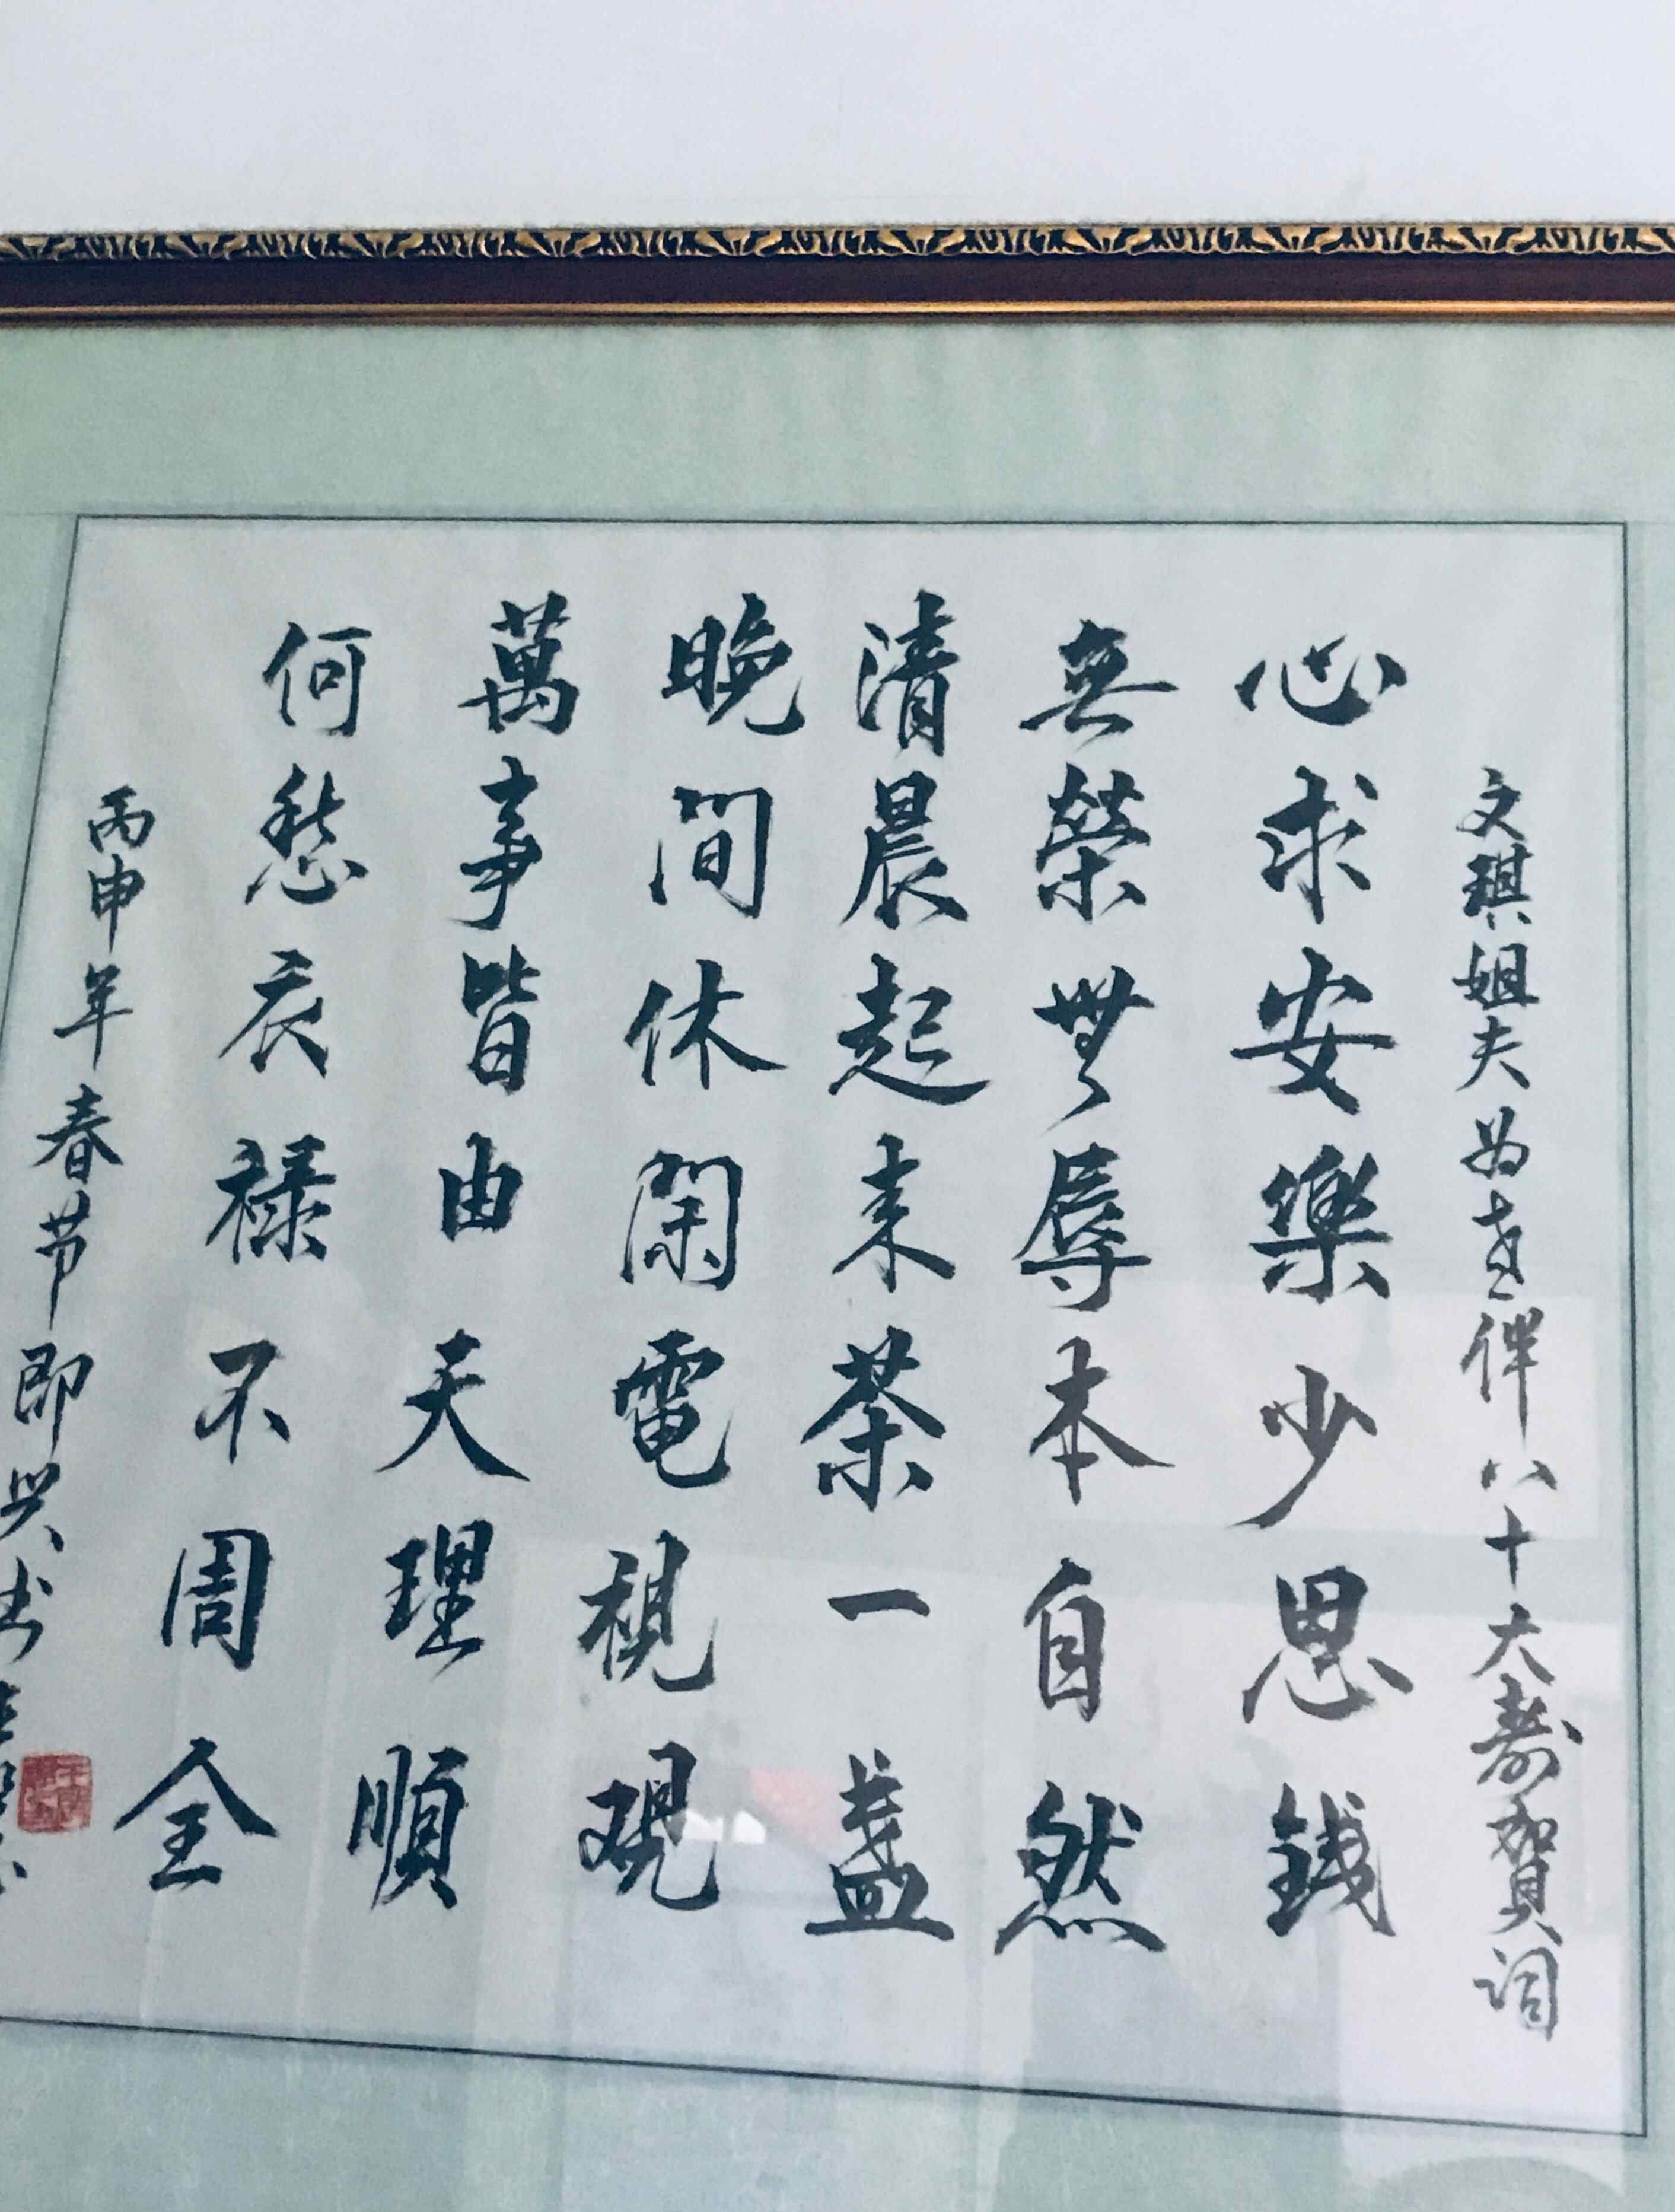 文琪姐夫为老伴八十大寿賀詞
心求安樂少思錢
無榮無辱本自然
清晨起来茶一盏
晚间休閑電視観
萬事皆由天理順
何愁衣禄不周全
丙申年春节即兴书